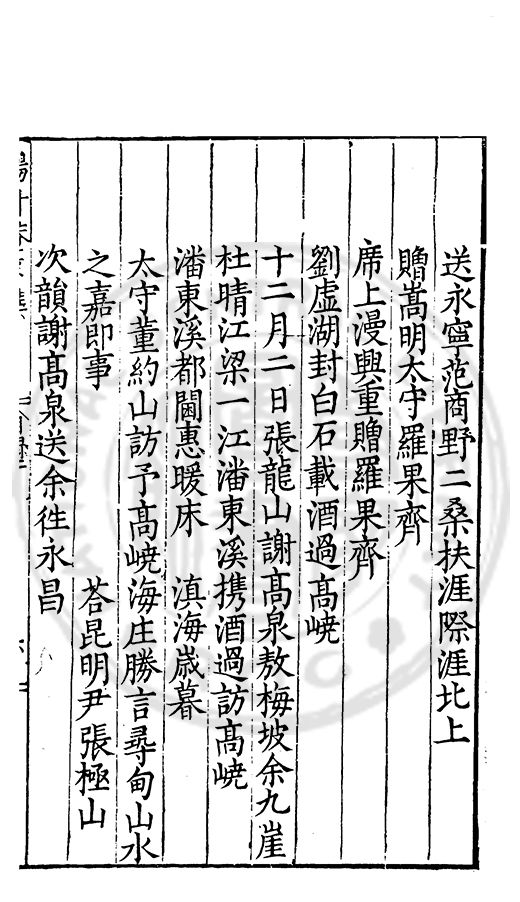 送永寧范商野二桑扶涯際涯北上
贈嵩明太守羅果齊
席上漫興重贈羅果齊
劉虛湖封白石載酒過高嶢
十二月二日張龍山謝高泉敖梅坡余九崖
杜晴江梁一江潘東溪携酒過訪高嶢
潘東溪都閫惠暖床 滇海歳暮
太守董約山訪予高嶢海庄勝言尋甸山水
之嘉即事 荅昆明尹張極山
次韻謝高泉送余徃永昌